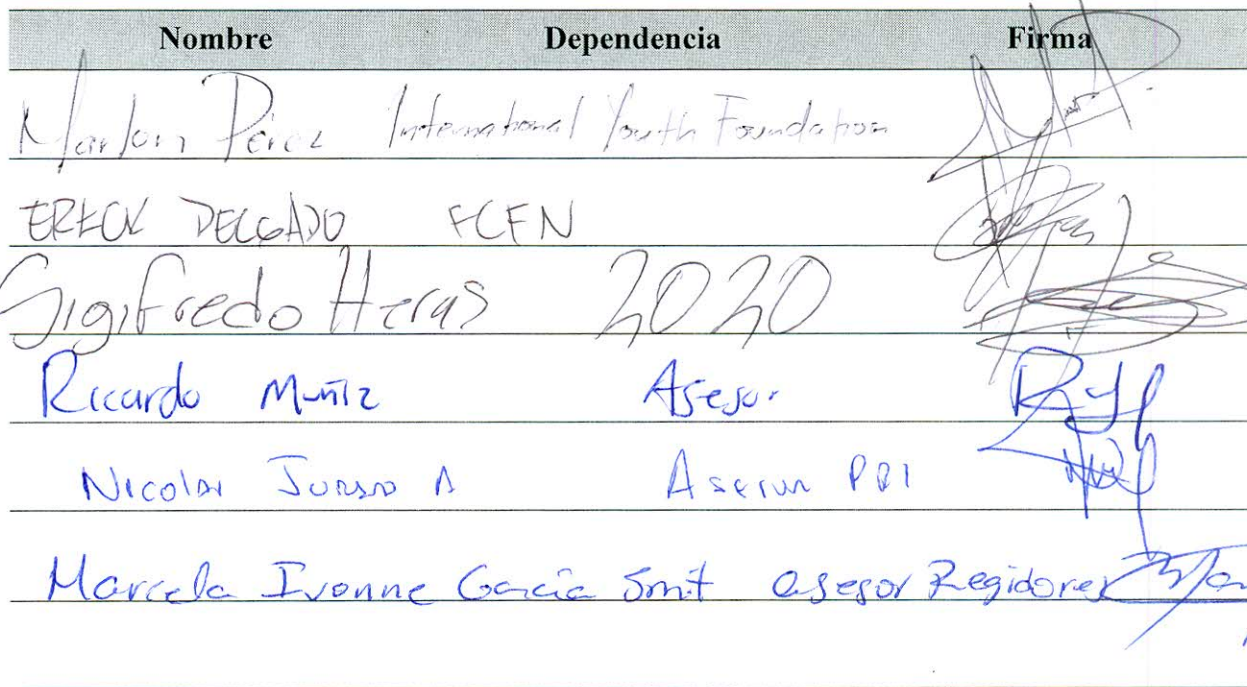 Nombre Dependencia Firma
Marlon Pérez International Youth Foundation
ERECK DELGADO FCFN
Sigifredo Heras 2020
Ricardo Muñiz Asesor
Nicolas A Asesor PRI
Marcela Ivonne García Smit asesor Regidores